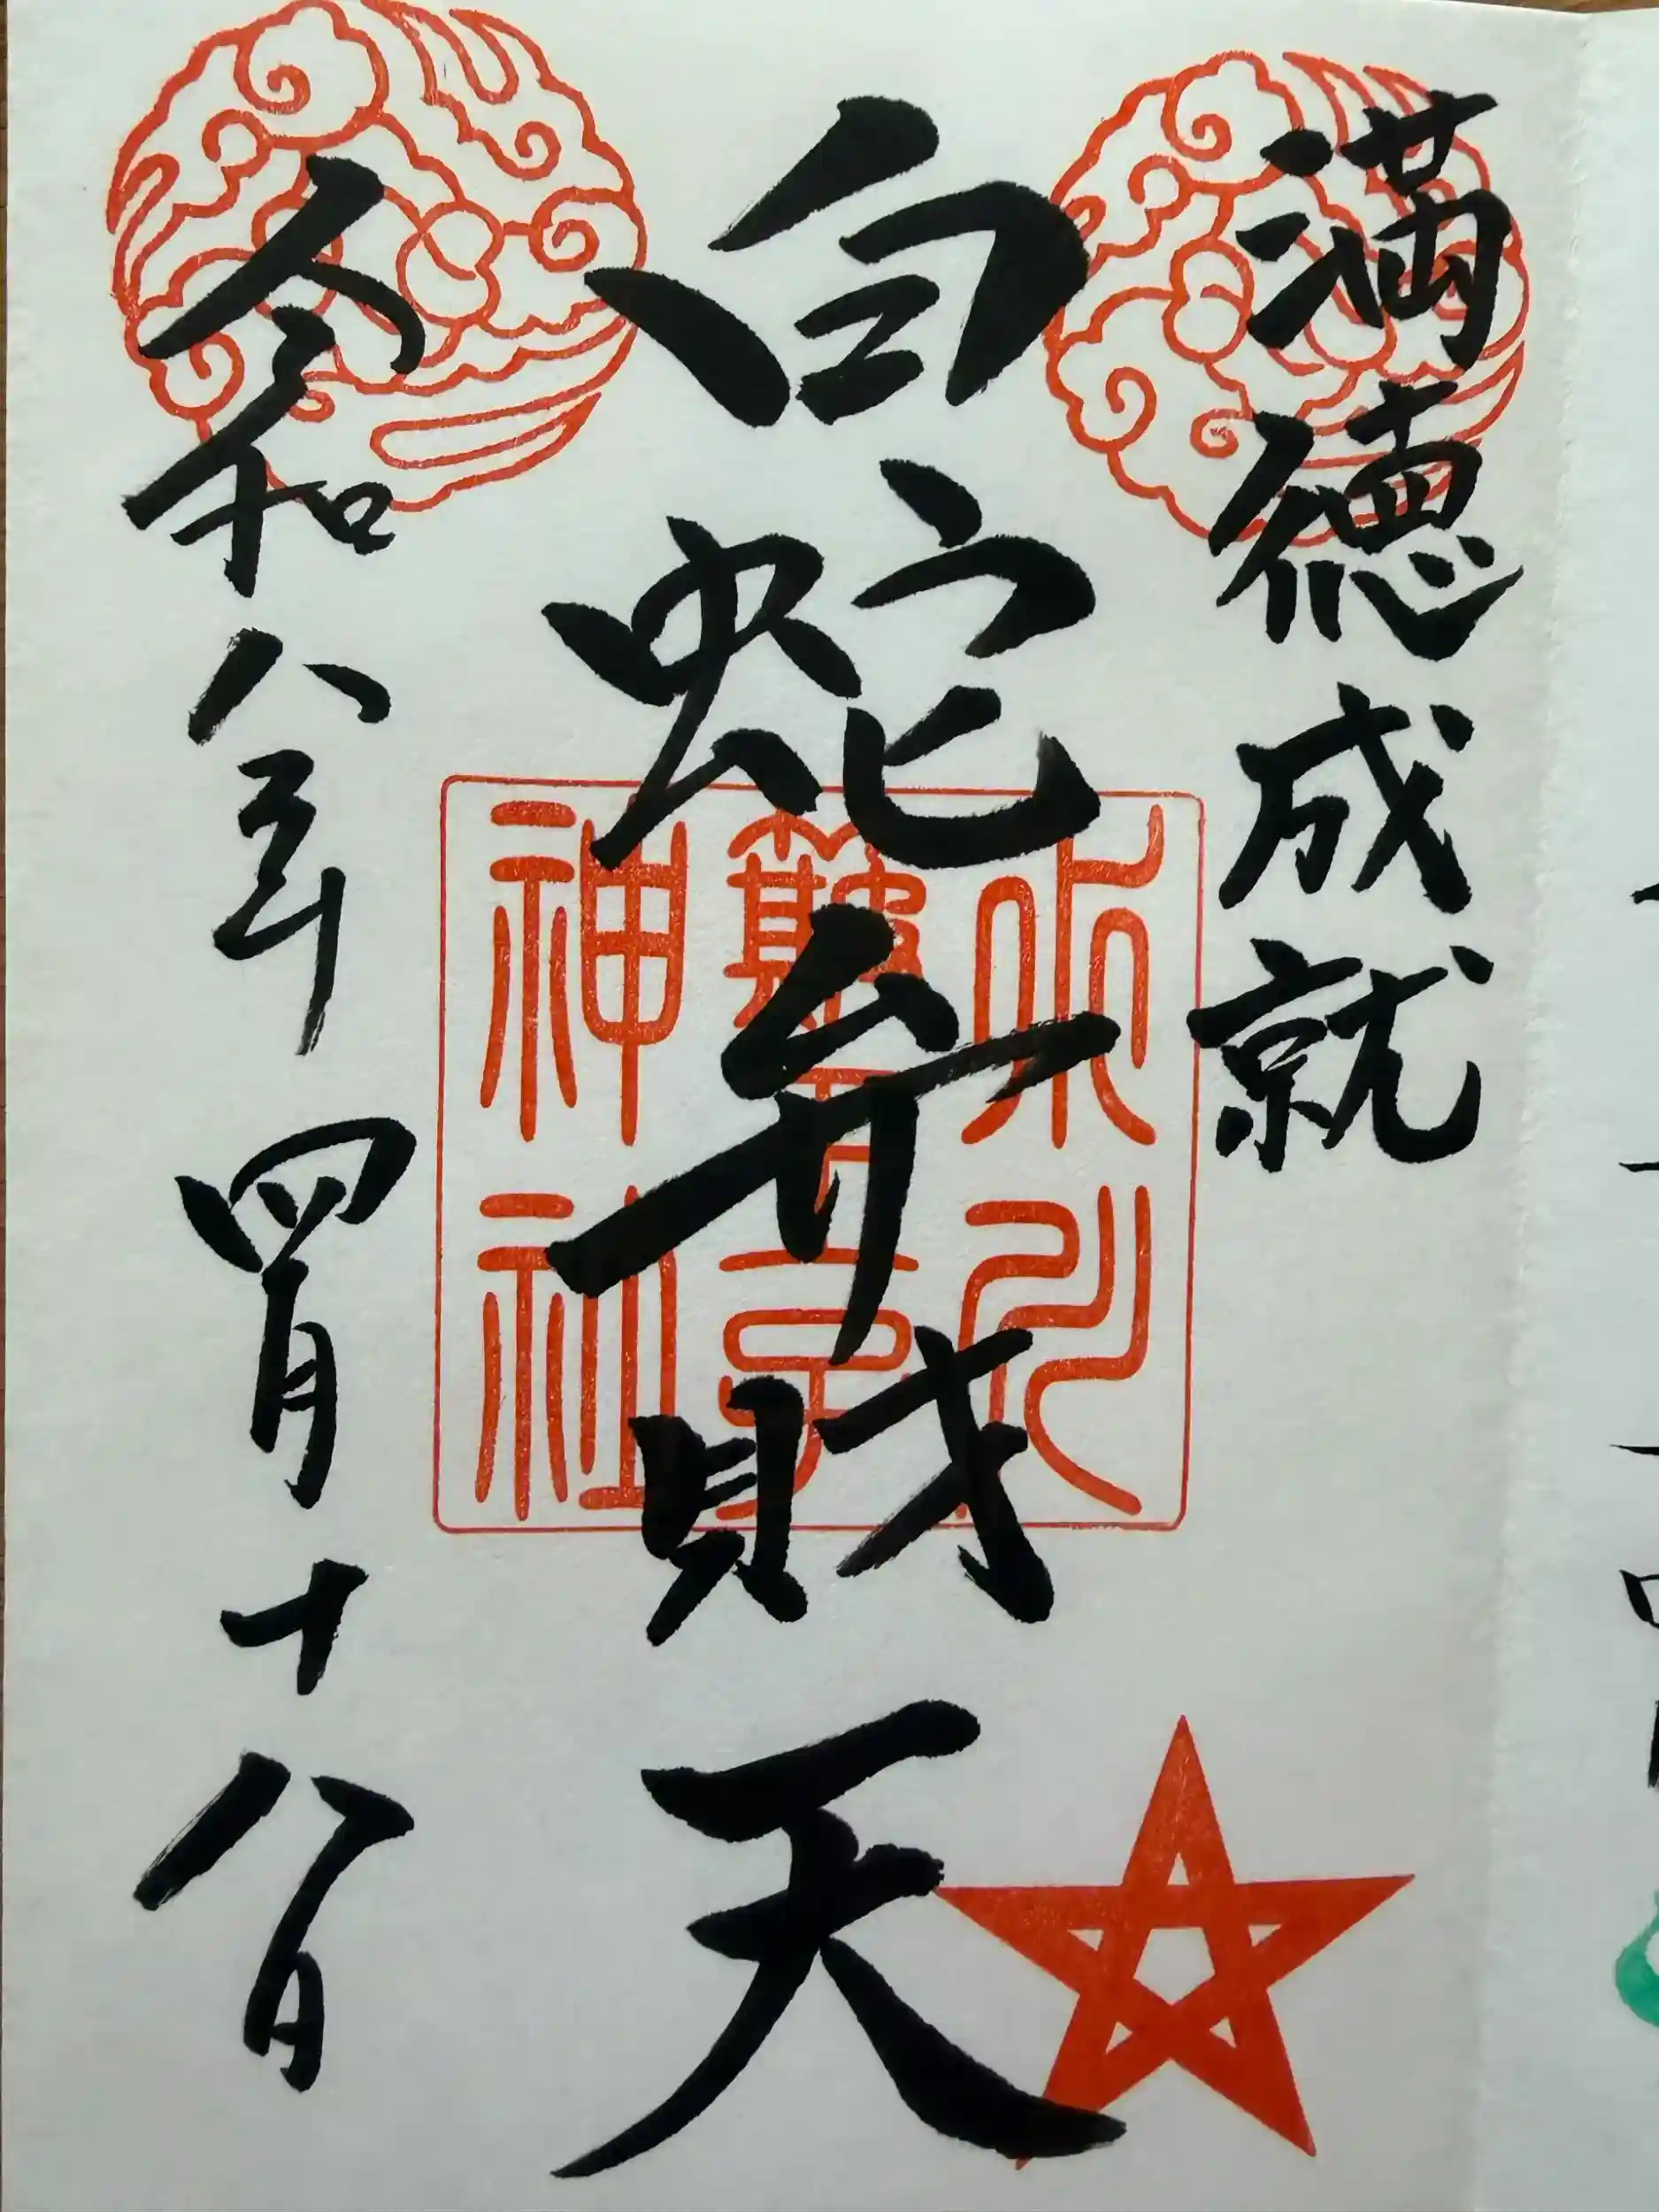 満徳成就
白蛇弁財天
令和八年四月十八日
神社